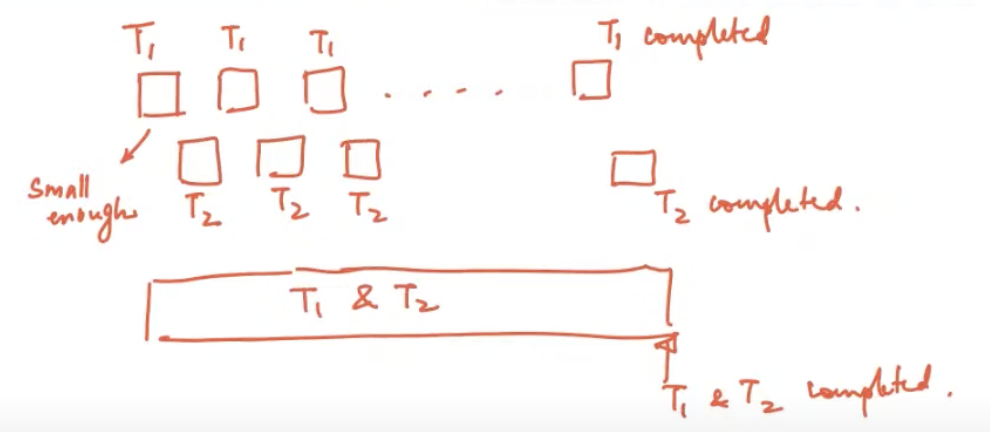 T₁ T₁ T₁ T₁ completed
Small
enough
T₂ T₂ T₂ T₂ completed.
T₁ & T₂
T₁ & T₂ completed.